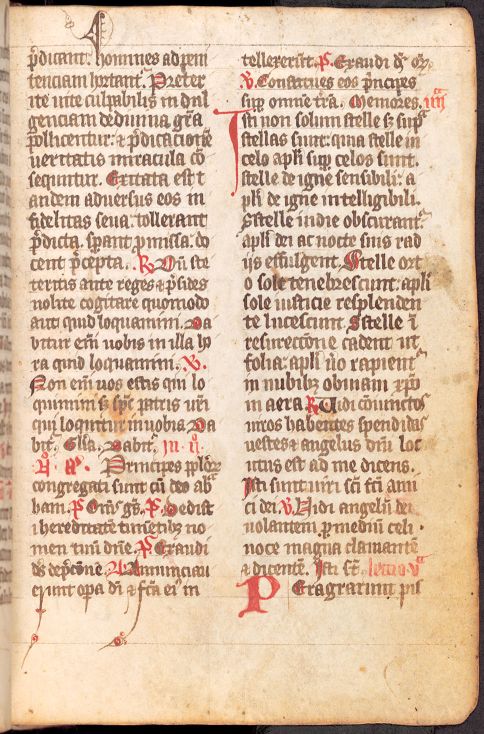 p̃dicant. homines ad peni
tenciam hortant᷑. Preter
ite uite culpabilis in dul
genciam de diuina gr̃a
pollicentur: ⁊ p̃dicacionẽ
ueritatis miracula cõ
sequntur. Excitata est t
andem aduersus eos in
fidelitas seua. tollerant
p̃dicta. spant promissa. do
cent p̃cepta. R̃ Dũ ste
teritis ante reges ⁊ p̃sides
nolite cogitare quomodo
aut quid loquamini. Da
bitur em̃ uobis in illa ho
ra quid loquamini. V̉.
Non em̃ uos estis qui lo
quimini s; sp̃c patris ur̃i
qui loquitur in uobis Da
bit᷑. Gl̃a. Dabit᷑. in · ij̊.
Principes pplõꝝ
congregati sunt cũ deo abˢ
ham. p̃s Dedist
i hereditatẽ timẽtibꝫ no
men tuũ dñe. p̃s Exaudi
ds̃ dep̃cõne. Annunciau
erunt opa dĩ ⁊ fc̃a eiˀ in
tellexerũt. p̃s. Exaudi ds̃ or̃.
V̉. Constitues eos p̃ncipes
sup omnẽ tr̃a. Memores. iiij
Isti non solum stelle s; supᷓ
stellas sunt: quia stelle in
celo apl̃i sup celos sunt.
stelle de igne sensibili: a
pl̃i de igne intelligibili.
Sstelle in die obscurant᷑
apl̃i dei ac nocte suis rad
ijs effulgent. Stelle ort
o sole tenebrescunt. apl̃i
sole iusticie resplenden
te lucescunt. Sstelle ĩ
resurrectiõne cadent ut
folia: apl̃i ũo rapient᷑
in nubibꝫ obuiam xp̃o
in aera R̃ Uidi coniunctos
uiros habentes splendidas
uestes ⁊ angelus dñi loc
utus est ad me dicens.
Isti sunt uiri sc̃i fc̃i ami
ci dei. V̉ Uidi angelũ dei
uolantem p mediũ celi ·
uoce magna clamantẽ
⁊ dicentẽ. Isti st̃. lectio vᵃ
Peragrarunt pis